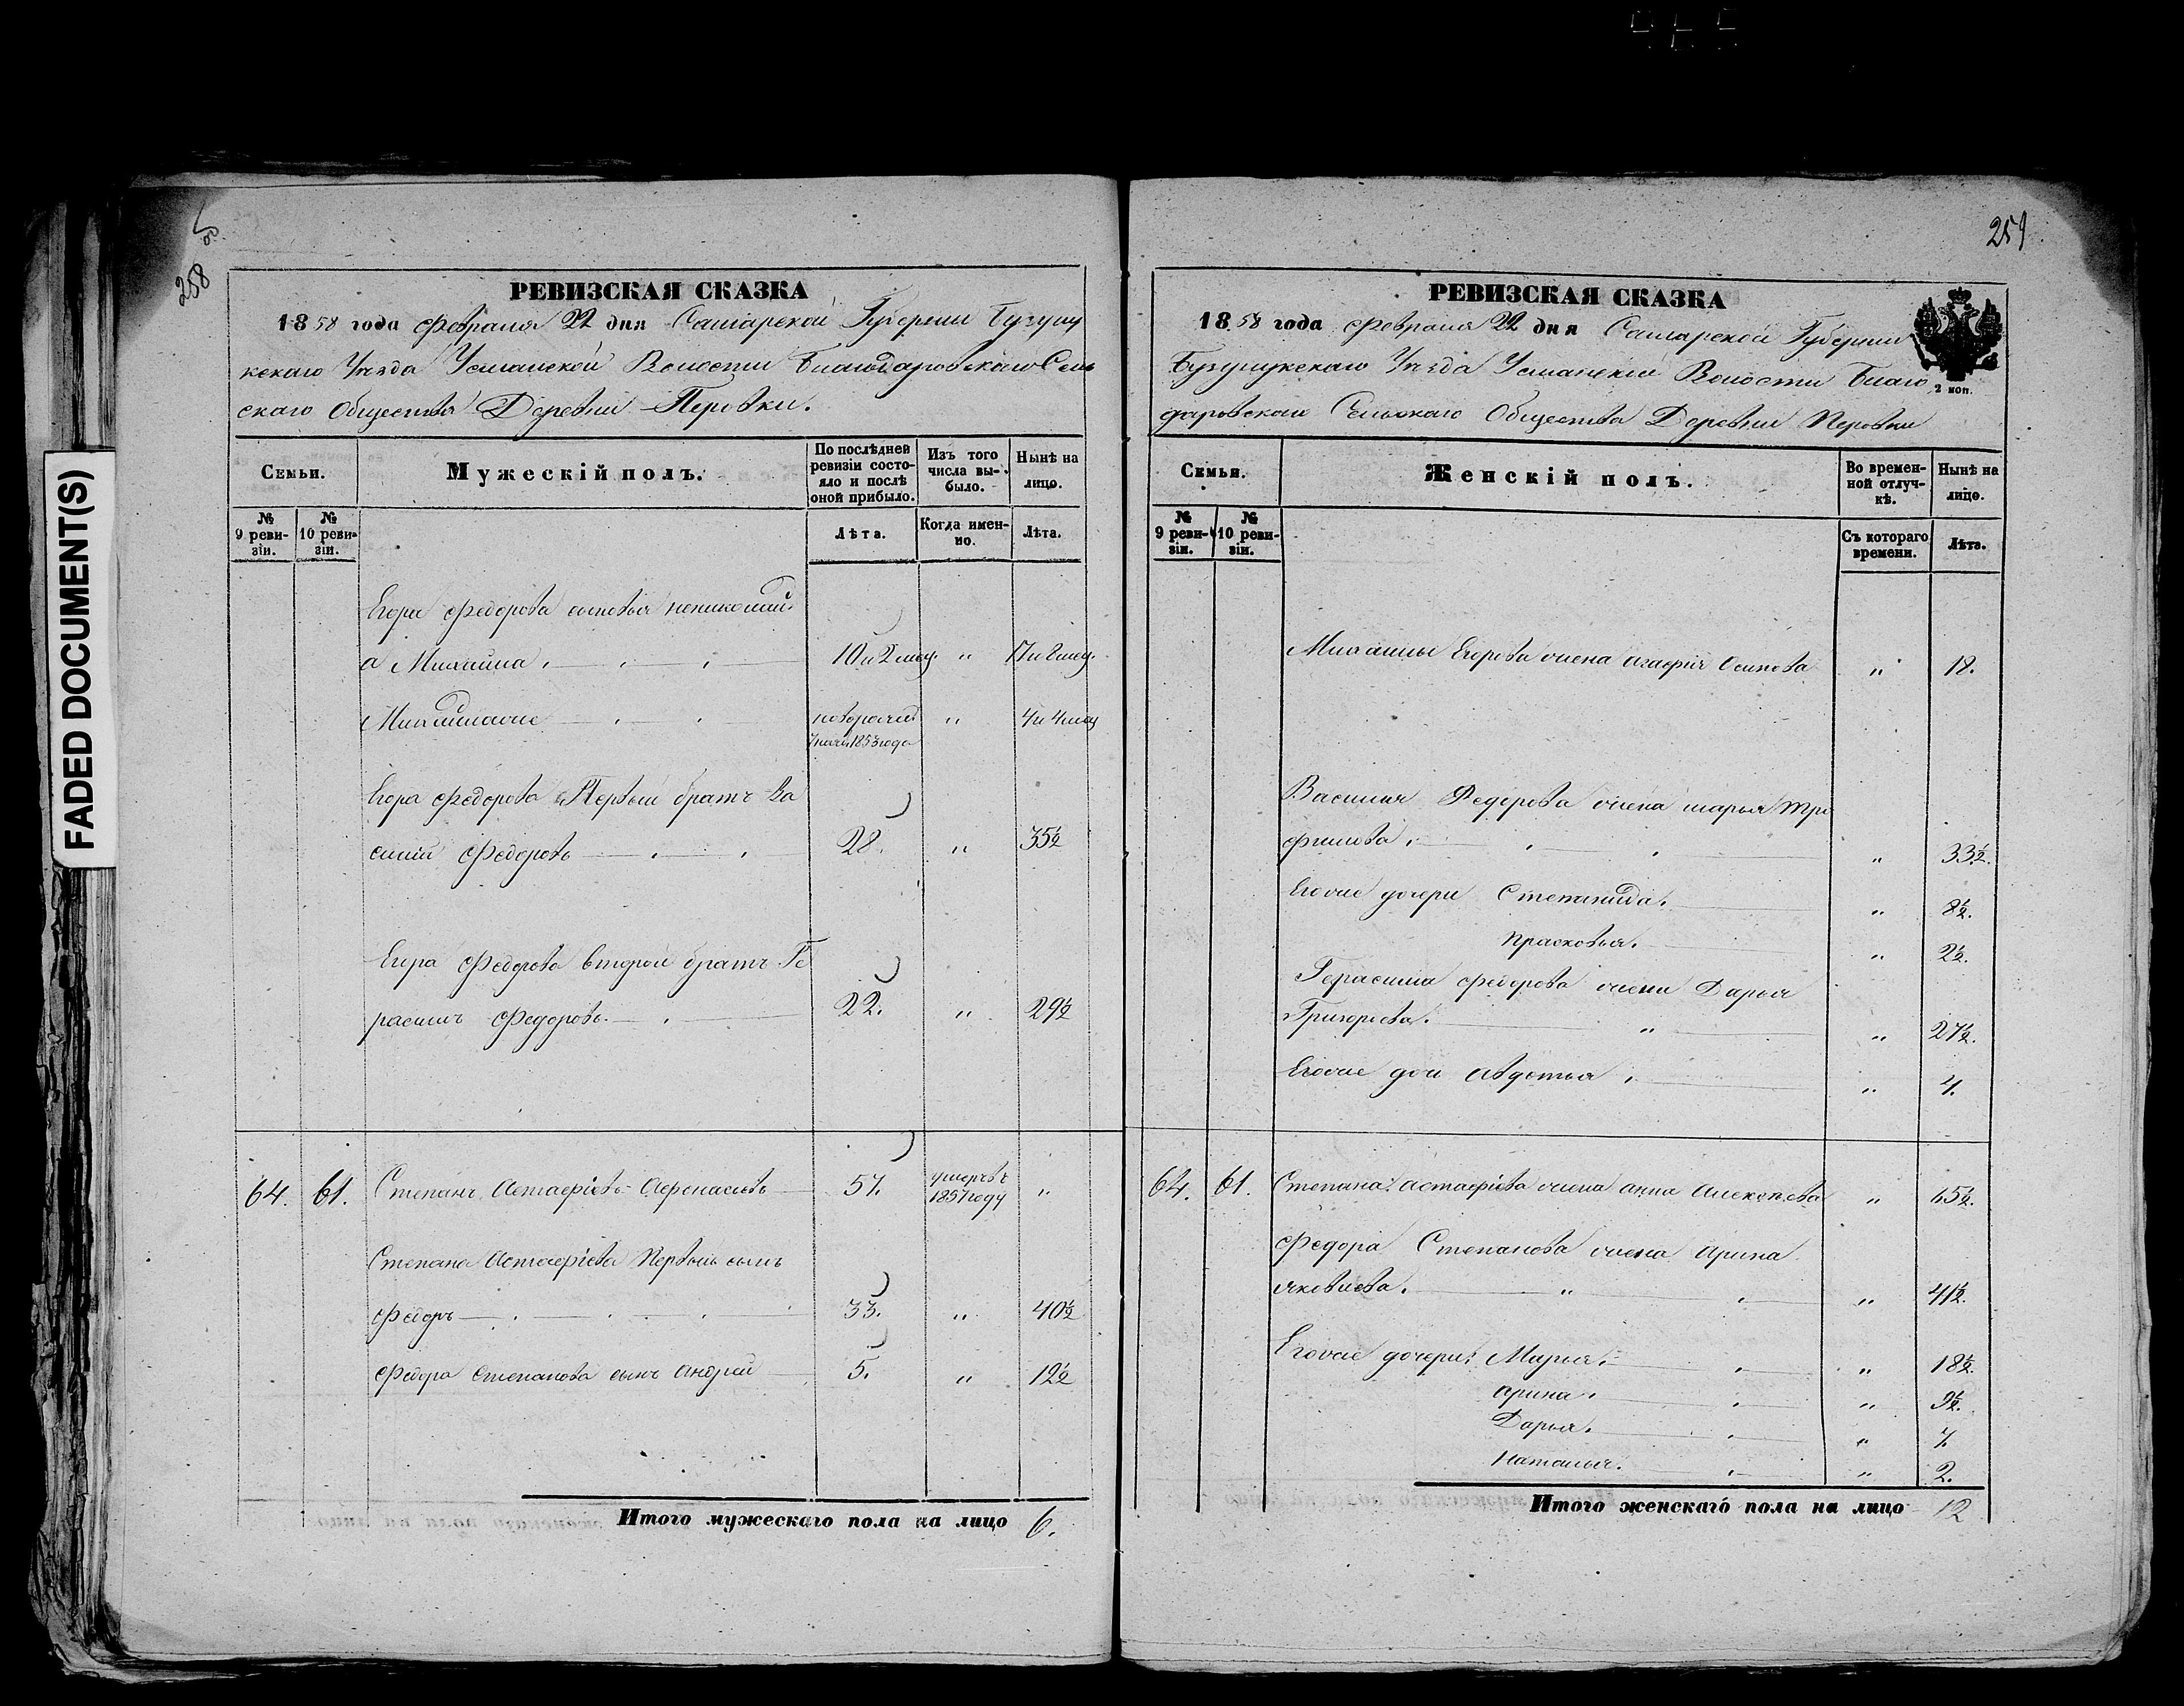 FADED DOCUMENT(S)
258
РЕВИЗСКАЯ СКАЗКА
1858 года Февраля 22 дня Самарской Губернии Бузулу
кскаго Уѣзда Усманской Волости Благодаровскаго Сель
скаго Общества Деревни Перовки.
Семьи.
Мужескій полъ.
По послѣдней ревизіи состояло и послѣ оной прибыло.
Изъ того числа выбыло.
Нынѣ на лицо.
№ 9 ревизіи.
№ 10 ревизіи.
Лѣта.
Когда именно.
Лѣта.
Егора Федорова сыновья
а Михайла 10 и 2 мец. " 17 и 8 мец.
Михайла " 4 и 4 мец
1853 года
Егора Федорова Первый братъ Ва
силій Федоровъ 28. " 35½
Егора Федорова второй братъ Ге
расимъ Федоровъ 22. " 29½
64. 61. Степанъ Астафіевъ Афонасьевъ 57. умеръ въ 1857 году "
Степана Астафіева Первый сынъ
Федоръ 33. " 40½
Федора Степанова сынъ Андрей 5. " 12½
Итого мужескаго пола на лицо 6.
259
РЕВИЗСКАЯ СКАЗКА
1858 года Февраля 22 дня Самарской Губернии
Бузулукскаго Уѣзда Усманской Волости Благо
даровскаго Сельскаго Общества Деревни Перовки
2 коп.
Семьи.
Женскій полъ.
Во временной отлучкѣ.
Нынѣ на лицо.
№ 9 ревизіи.
№ 10 ревизіи.
Съ котораго времени.
Лѣта.
Михайлы Егорова жена Агафія Осипова " 18.
Василия Федорова жена Марья Тро
фимова. " 33½.
Еговые дочери Степанида. " 8½.
Прасковья. " 2½.
Герасима Федорова жена Дарья
Григорьева. " 27½.
Еговые дочь Авдотья " 4.
64. 61. Степана Астафіева жена Анна Алексѣева " 65½.
Федора Степанова жена Арина
Яковлева. " 41½.
Еговые дочери: Марья. " 18½.
Арина. " 9½.
Дарья. " 7.
Наталья. " 2.
Итого женскаго пола на лицо 12